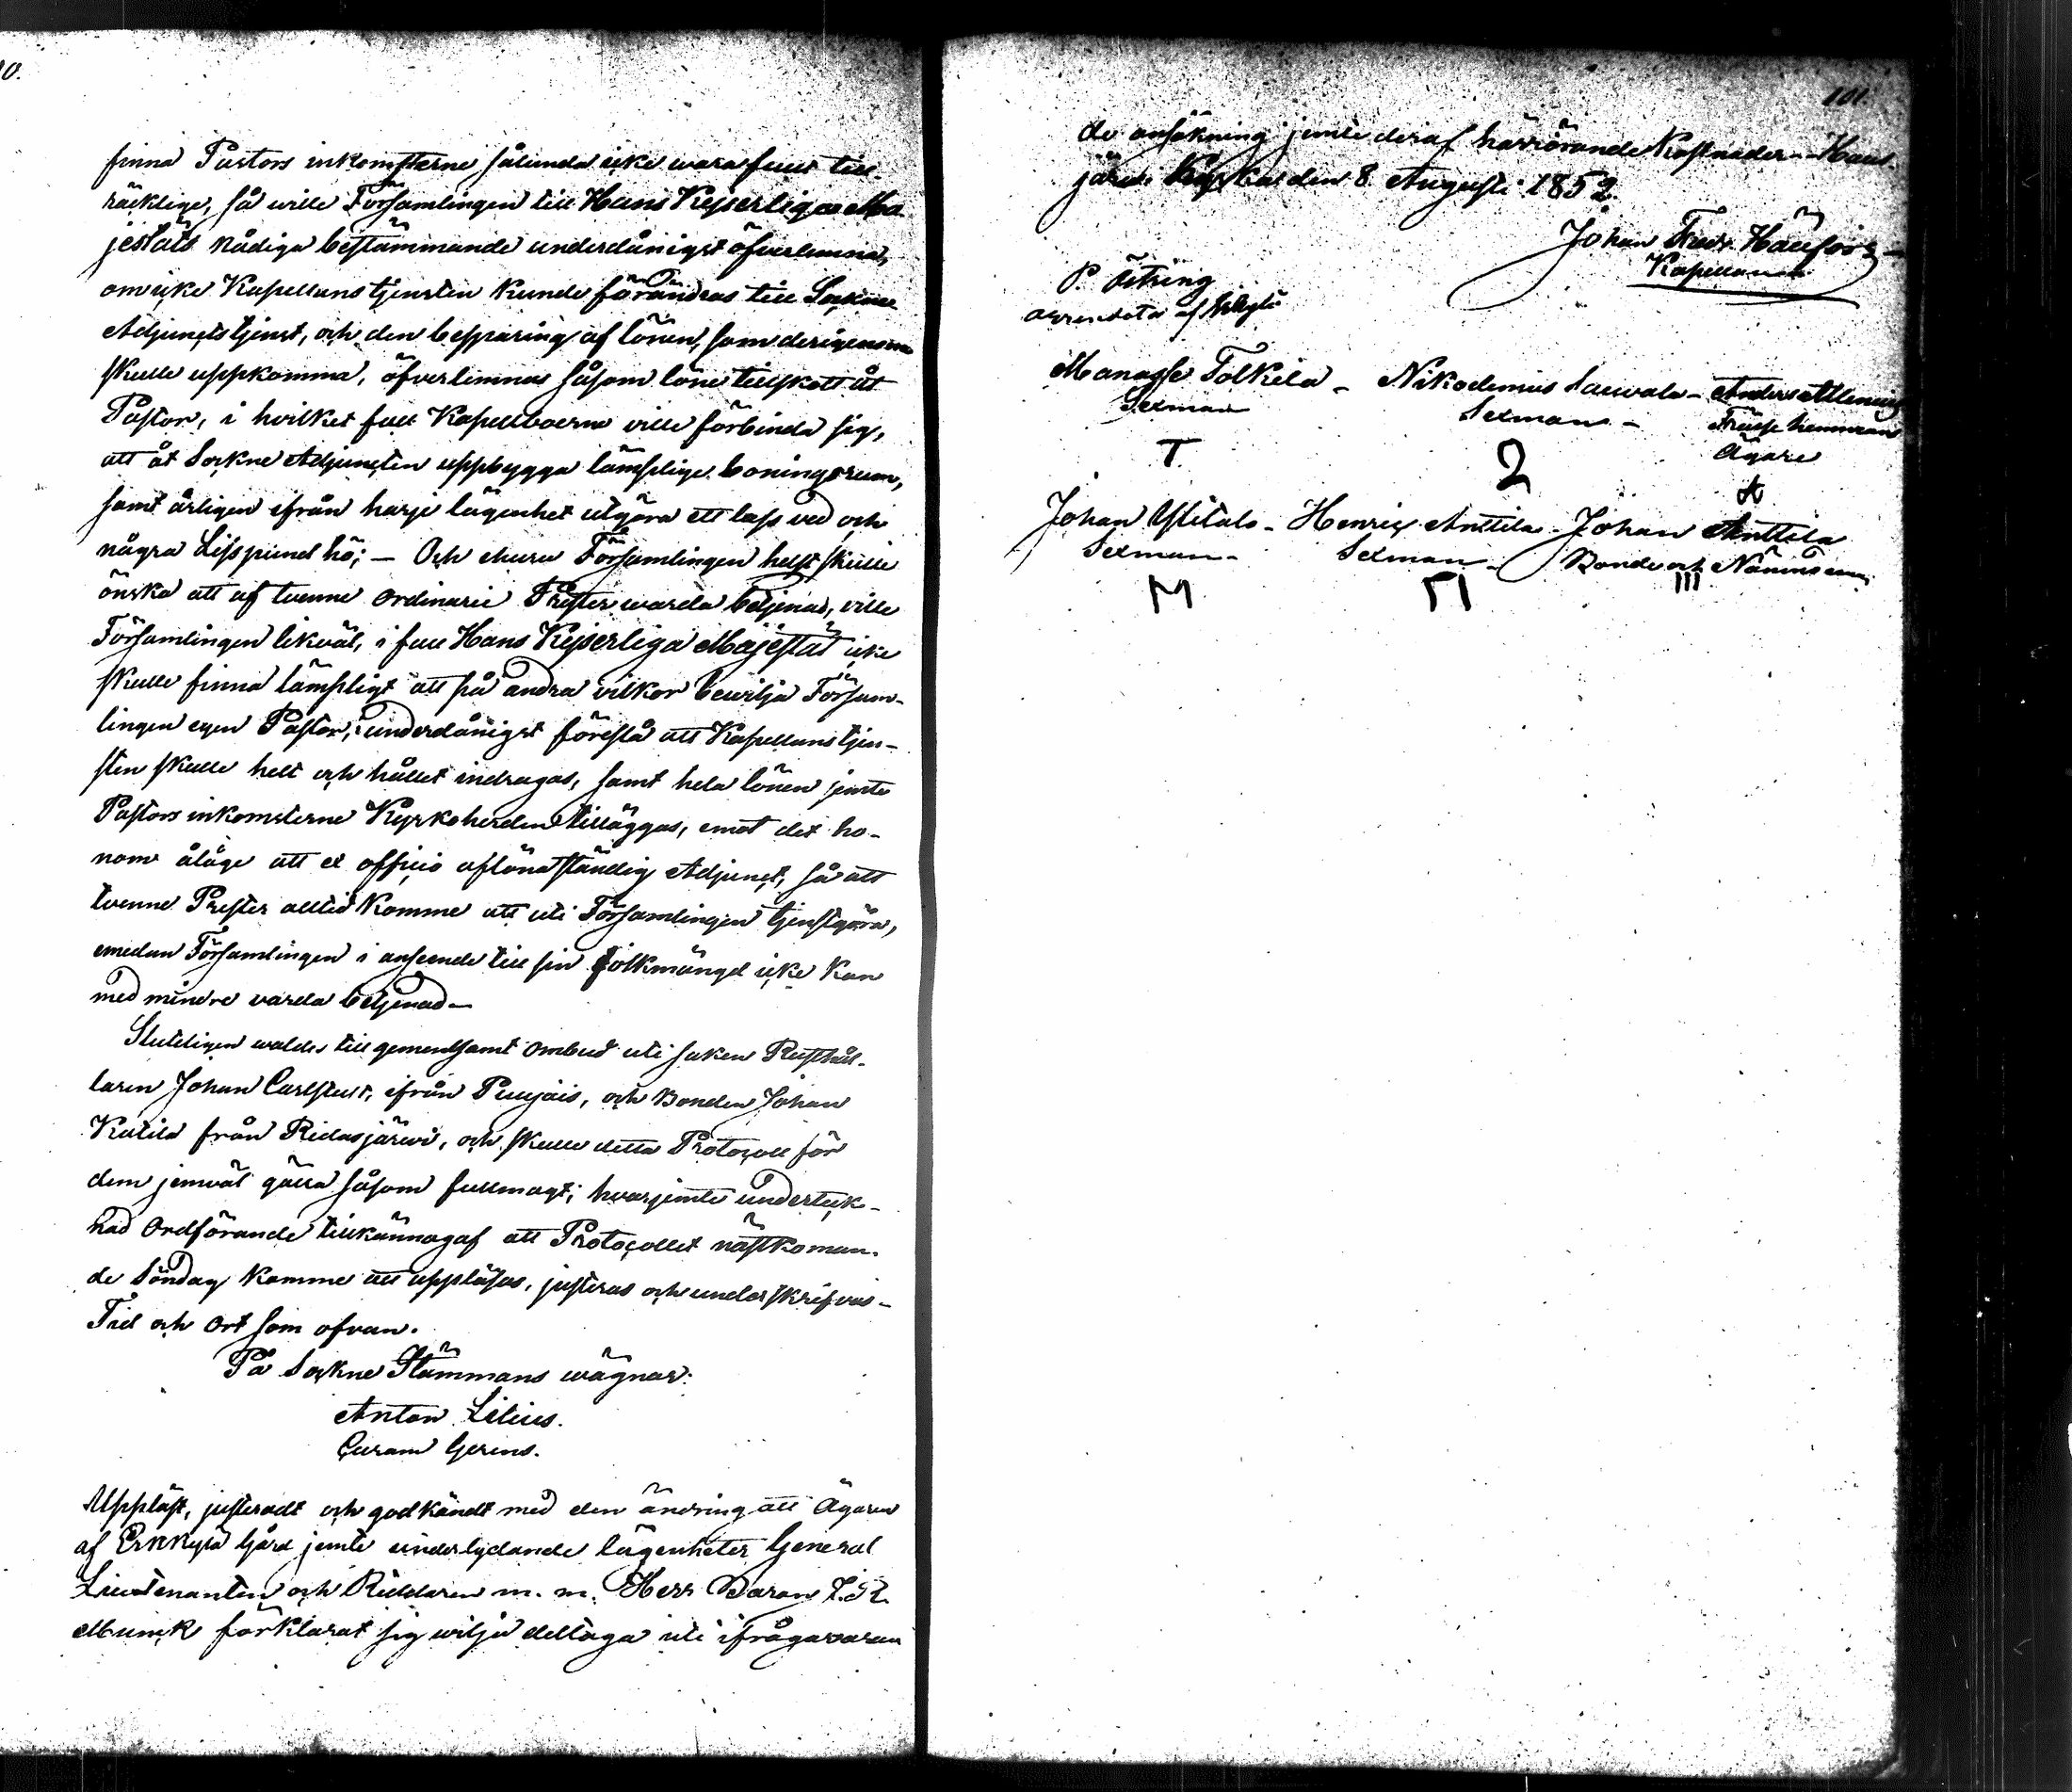 0.
finna Pastors inkomsterne sålunda icke wara fullt till
räcklige, så wille Församlingen till Hans Kejserliga Ma
jestäts nådiga bestämmande underdånigst öfverlemna,
om icke Kapellanstjensten kunde förändras till Sockne
Adjunctstjenst, och den besparing af lönen, som derigenom
skulle uppkomma, öfverlemnas såsom löne tillskott åt
Pastor, i hvilket fall Kapellboerne ville förbinda sig,
att åt Sockne Adjuncten uppbygga lämplige boningsrum,
samt årligen ifrån harje lägenhet utgöra ett lass ved och
några Lisspund hö; — Och ehuru Församlingen helst skulle
önska att af tvenne ordinarie Prester warda betjenad, ville
Församlingen likväl, i fall Hans Kejserliga Majestät icke
skulle finna lämpligt att på andra vilkor bewilja Försam-
lingen egen Pastor, underdånigst föreslå att Kapellanstjen-
sten skulle helt och hållet indragas, samt hela lönen jemte
Pastors inkomsterne Kyrkoherden tilläggas, emot det ho-
nom åläge att ex officio aflöna ständig Adjunct, så att
tvenne Prester alltid komme att uti Församlingen tjenstgöra,
emedan Församlingen i anseende till sin folkmängd icke kan
med mindre varda betjenad —
Slutligen waldes till gemensamt ombud uti saken Rusthål-
laren Johan Carlstedt, ifrån Puujais, och Bonden Johan
Katila från Ridasjärwi, och skulle detta Protocoll för
dem jemväl gälla såsom fullmagt; hvarjemte underteck-
nad Ordförande tillkännagaf att Protocollet nästkomman-
de Söndag komme att uppläsas, justeras och underskrifvas —
Tid och ort som ofvan.
På Sockne Stämmans wägnar:
Anton Lilius.
Curam Gerens.
Uppläst, justeradt och godkändt med den ändring att Ägaren
af Erkkylä Gård jemte underlydande lägenheter General
Lieutenanten och Riddaren m. m. Herr Baron J. R.
Munck förklarat sig wilja deltaga uti ifrågavaran
101.
de ansökning jemte deraf härrörande kostnader — Haus
järwi Kyrka den 8 Augusti 1852.
Johan Fredr. Hällfors
Kapellan
P. Österg
arrendator af Erkylä
Manasse Tolkila — Nikodemus Sauvala — Anders
Sexman Sexman — Frälse hemmans
Ägare
T 2 A
Johan Ylitalo — Henric Anttila — Johan Anttila
Sexman — Sexman — Bonde och Nämndeman
M M III